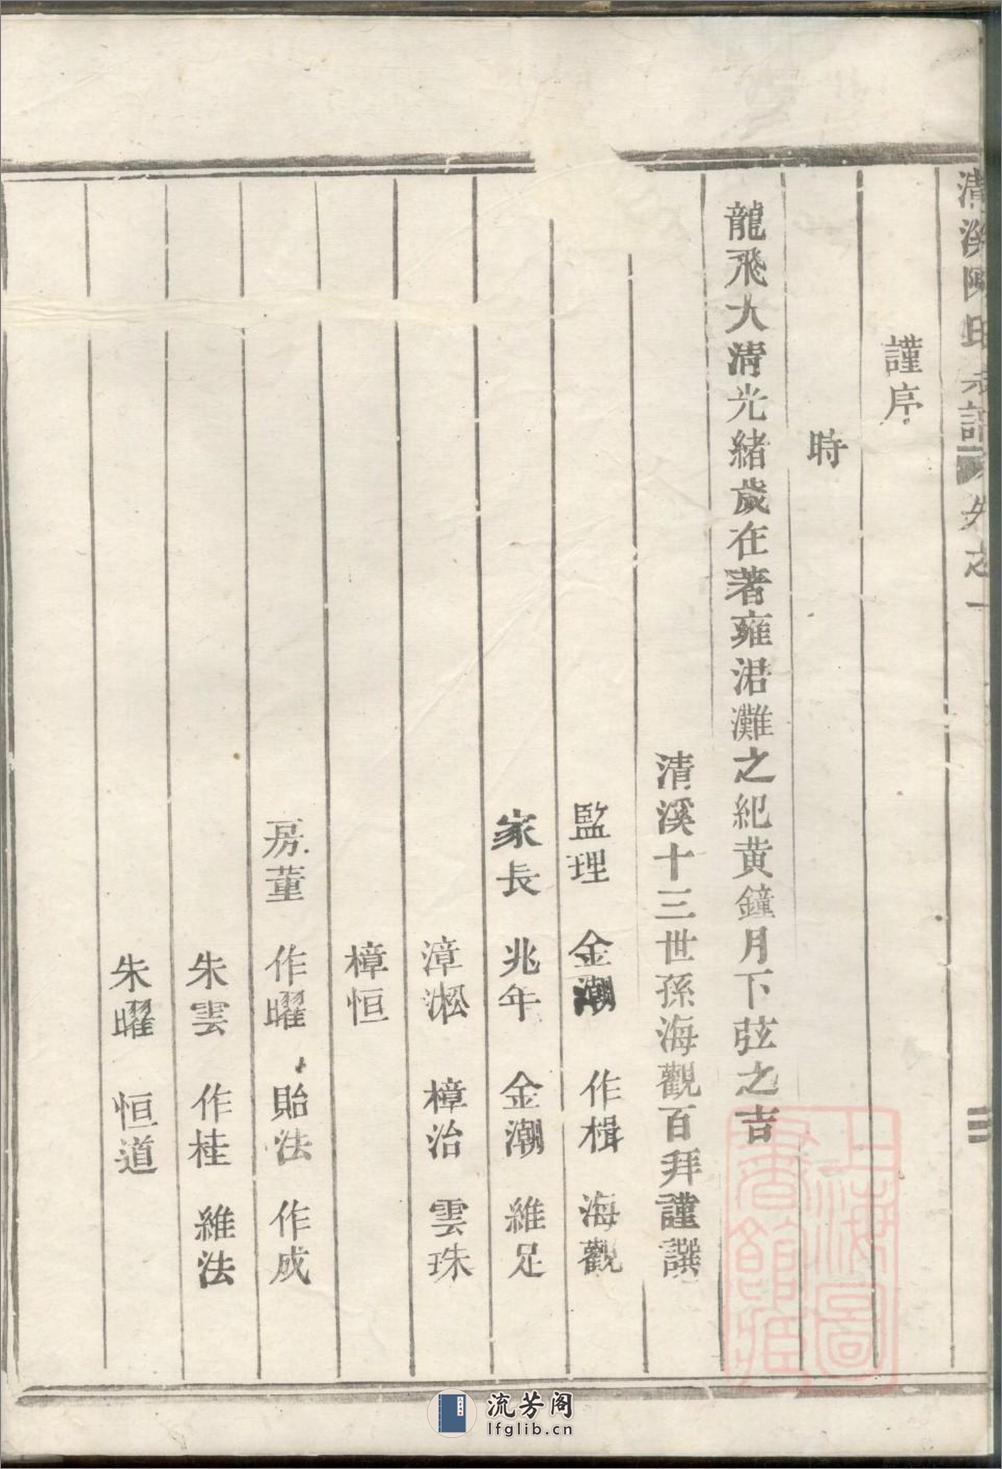 清溪陳氏宗譜 卷之一
謹序
時
龍飛大清光緒歲在著雍涒灘之紀黄鐘月下弦之吉
清溪十三世孫海觀百拜謹譔
監理 金潮 作楫 海觀
家長 兆年 金潮 維足
漳淞 樟治 雲珠
樟恒
房董 作曜 貽法 作成
朱雲 作桂 維法
朱曜 恒道
三
上海圖書館藏
流芳阁
lfglib.cn